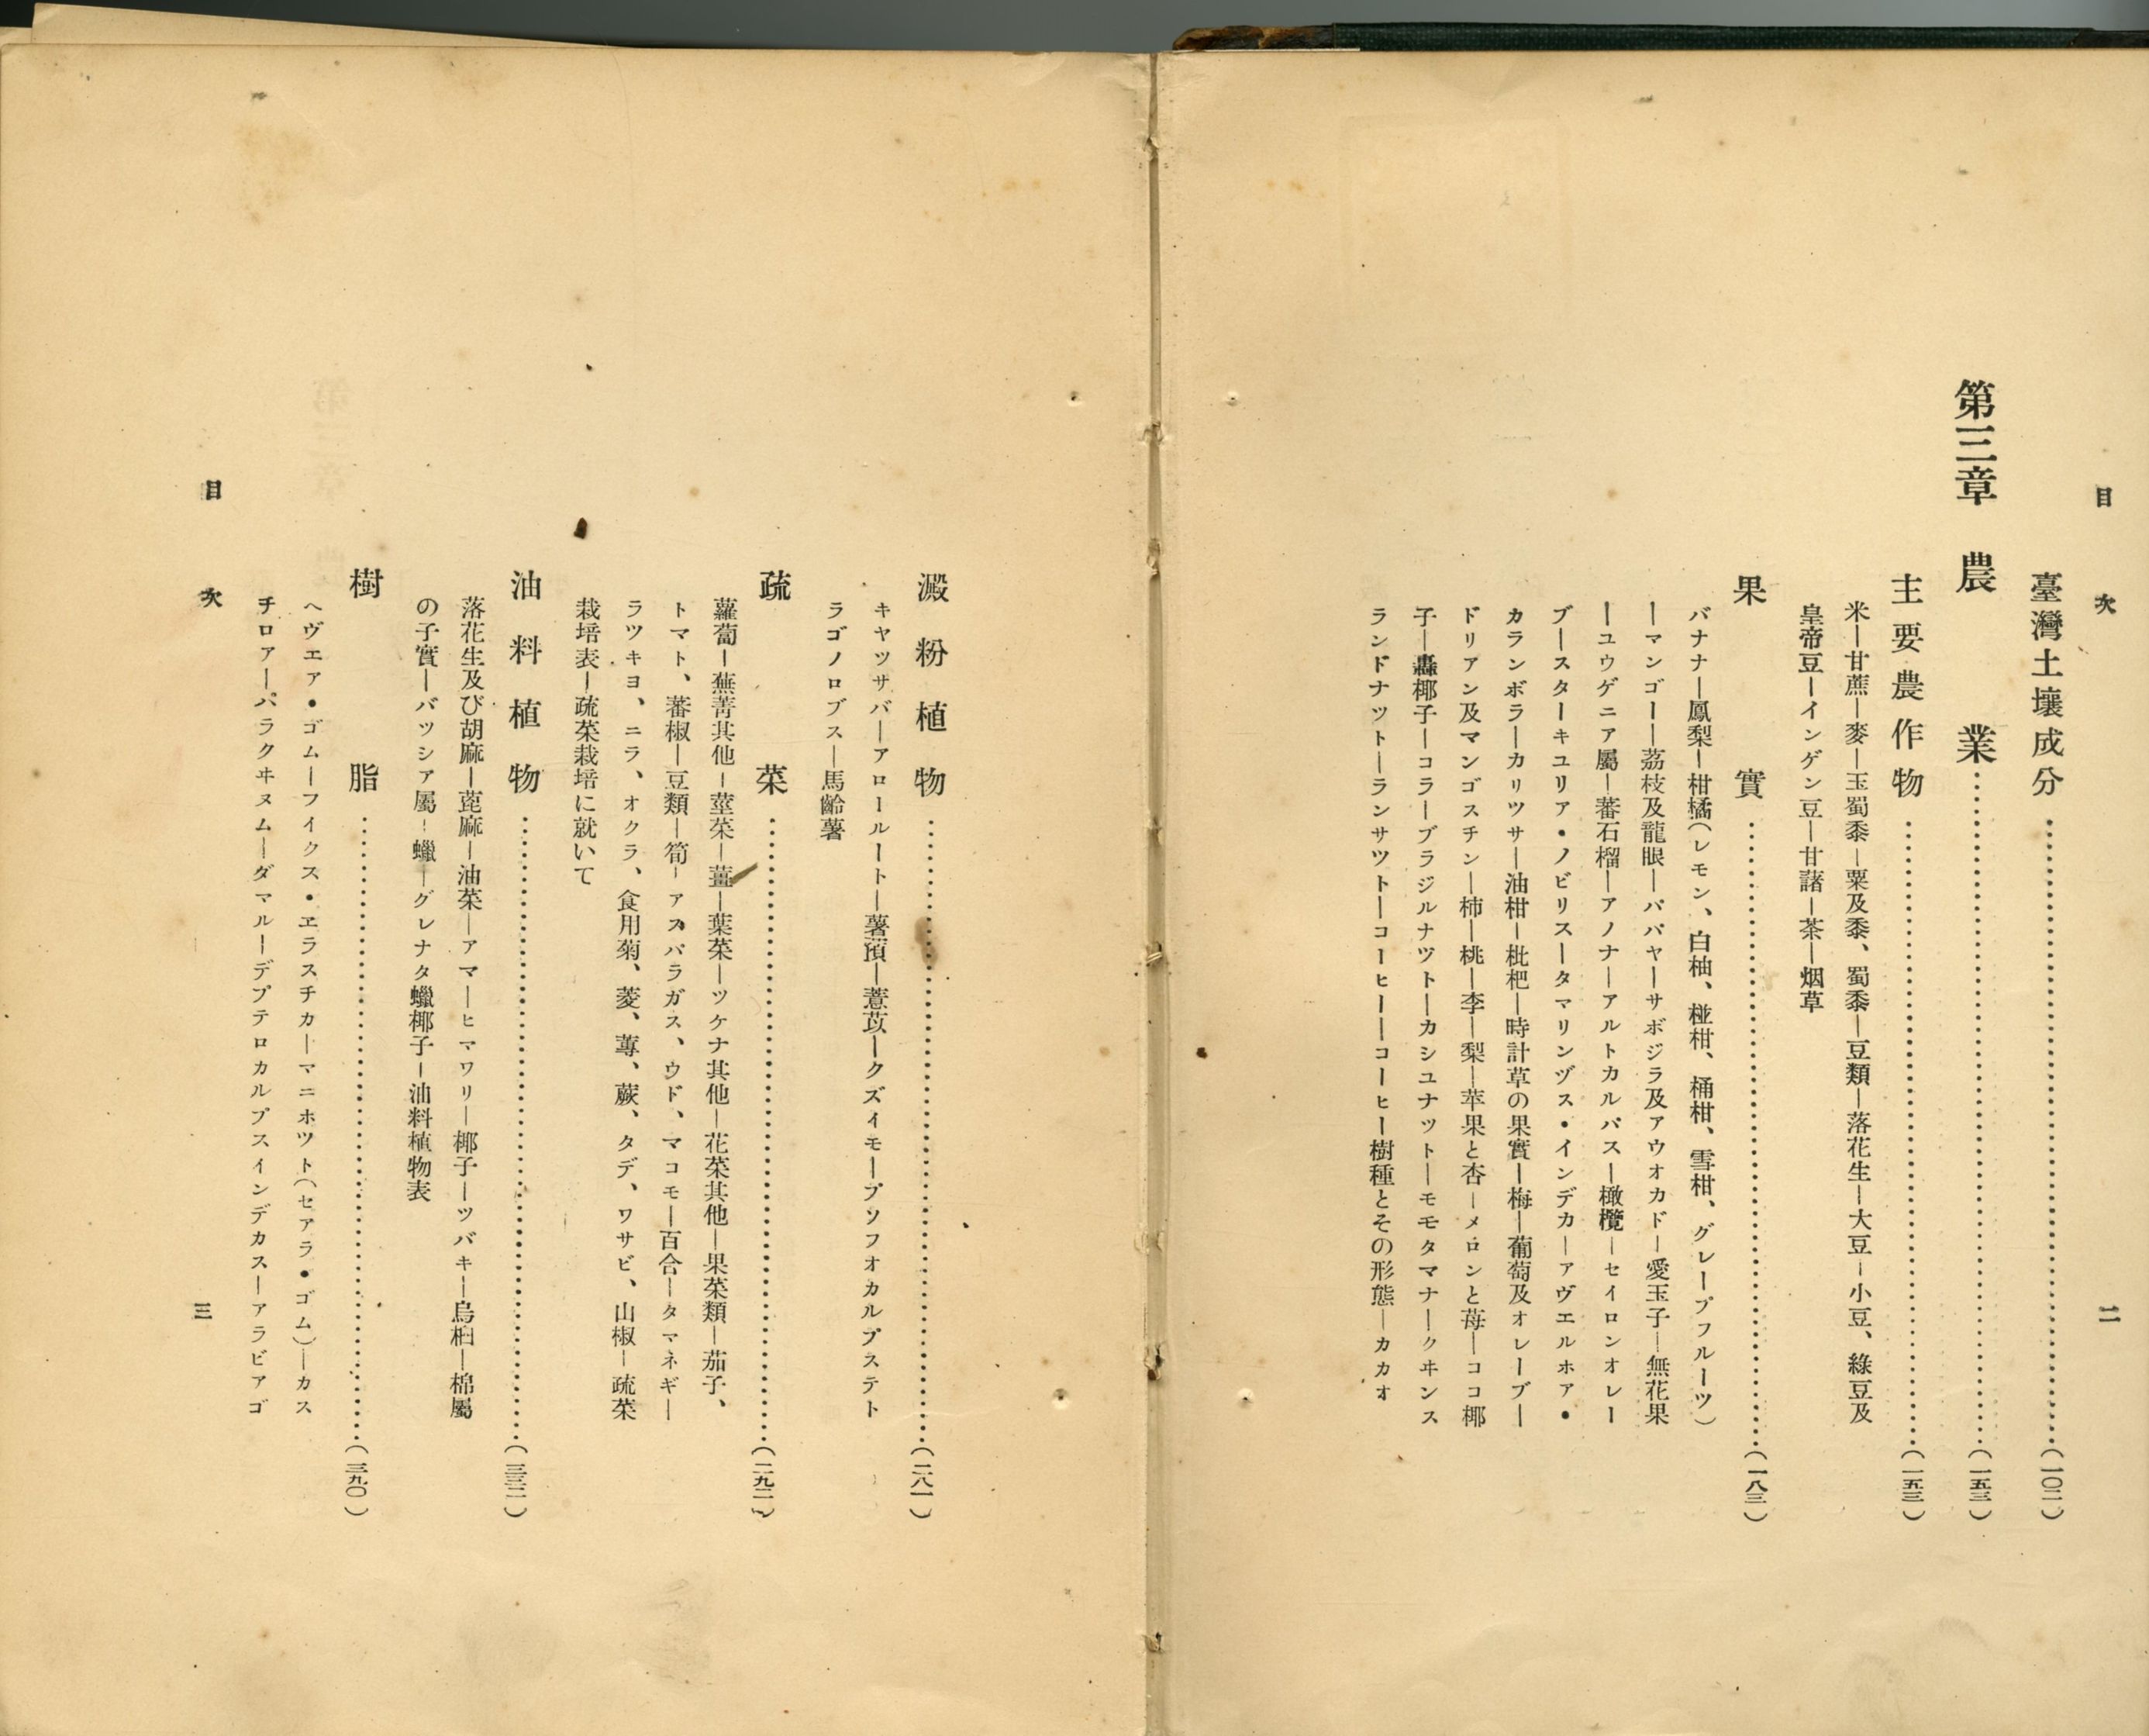 目次
二
臺灣土壤成分……(一〇二)
第三章 農業……(一五三)
主要農作物……(一五三)
米―甘蔗―麥―玉蜀黍―粟及黍、蜀黍―豆類―落花生―大豆―小豆、綠豆及
皇帝豆―インゲン豆―甘藷―茶―烟草
果實……(一八三)
バナナ―鳳梨―柑橘(レモン、白柚、椪柑、桶柑、雪柑、グレープフルーツ)
―マンゴー―茘枝及龍眼―パパヤ―サボジラ及アウオカド―愛玉子―無花果
―ユウゲニア屬―蕃石榴―アノナ―アルトカルパス―橄欖―セイロンオレー
ブ―スターキユリア・ノビリス―タマリンヅス・インデカ―アヴエルホア・
カランボラ―カリツサ―油柑―枇杷―時計草の果實―梅―葡萄及オレーブ―
ドリアン及マンゴスチン―柿―桃―李―梨―苹果と杏―メロンと苺―ココ椰
子―轟椰子―コラ―ブラジルナツト―カシユナット―モモタマナ―クヰンス
ランドナツト―ランサツト―コーヒー―コーヒー樹種とその形態―カカオ
澱粉植物……(二八一)
キヤツサバ―アロールート―薯蕷―薏苡―クズイモ―プソフオカルプステト
ラゴノロブス―馬齡薯
疏菜……(二九二)
蘿蔔―蕪菁其他―莖菜―薑―葉菜―ツケナ其他―花菜其他―果菜類―茄子、
トマト、蕃椒―豆類―筍―アスパラガス、ウド、マコモ―百合―タマネギ―
ラツキヨ、ニラ、オクラ、食用菊、菱、蓴、蕨、タデ、ワサビ、山椒―疏菜
栽培表―疏菜栽培に就いて
油料植物……(三三二)
落花生及び胡麻―蓖麻―油菜―アマ―ヒマワリ―椰子―ツバキ―烏桕―棉屬
の子實―バツシア屬―蠟―グレナタ蠟椰子―油料植物表
樹脂……(三九〇)
ヘヴエア・ゴム―フイクス・ヱラスチカ―マニホツト(セアラ・ゴム)―カス
チロアー―パラクヰヌム―ダマル―デプテロカルプスインデカス―アラビアゴ
目次
三